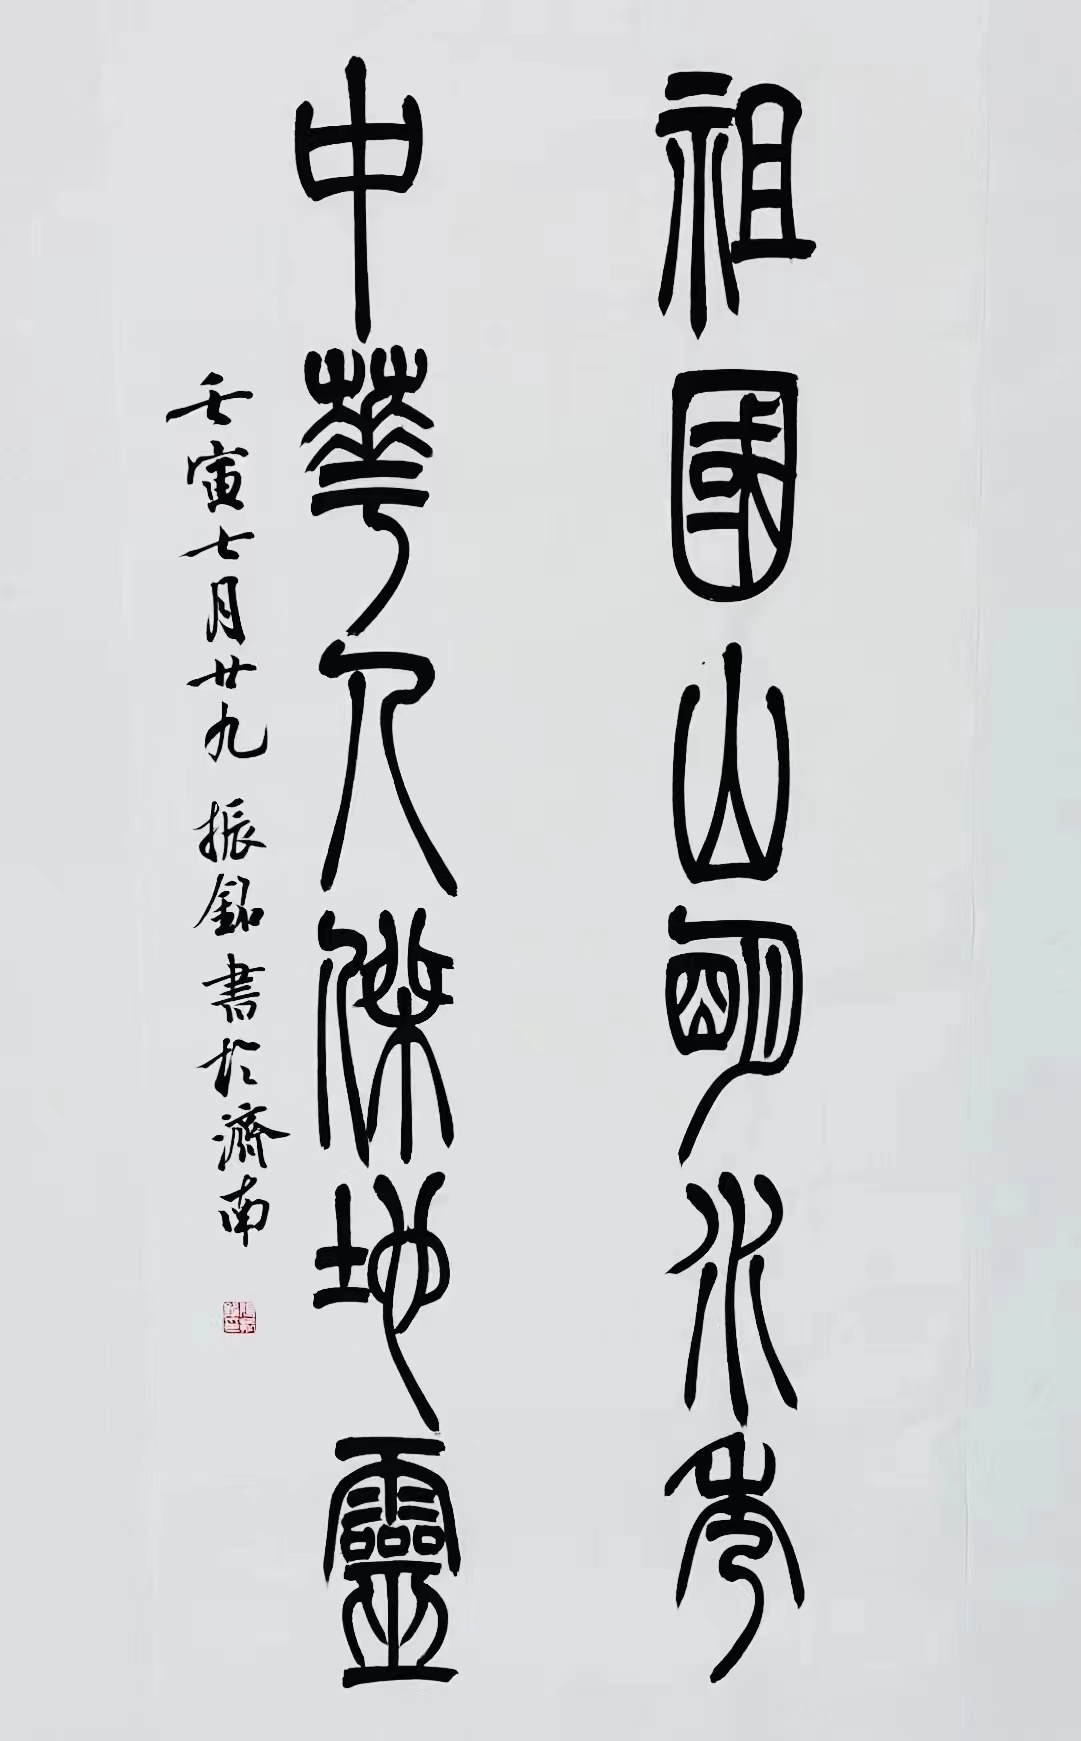 祖國山明水秀
中華人傑地靈
壬寅七月廿九 振銘書於濟南